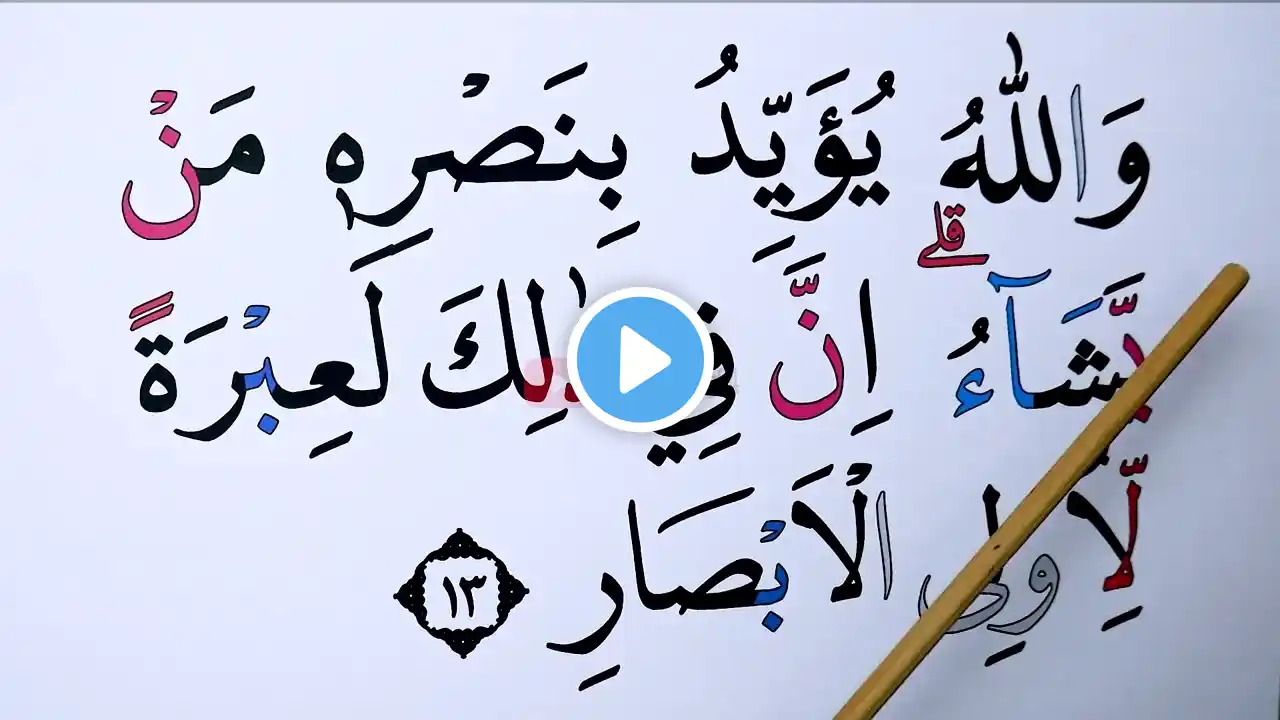 وَاللّٰهُ يُؤَيِّدُ بِنَصْرِهٖ مَنْ
يَّشَآءُ ؕ اِنَّ فِيْ ذٰلِكَ لَعِبْرَةً
لِّاُولِى الْاَبْصَارِ ١٣